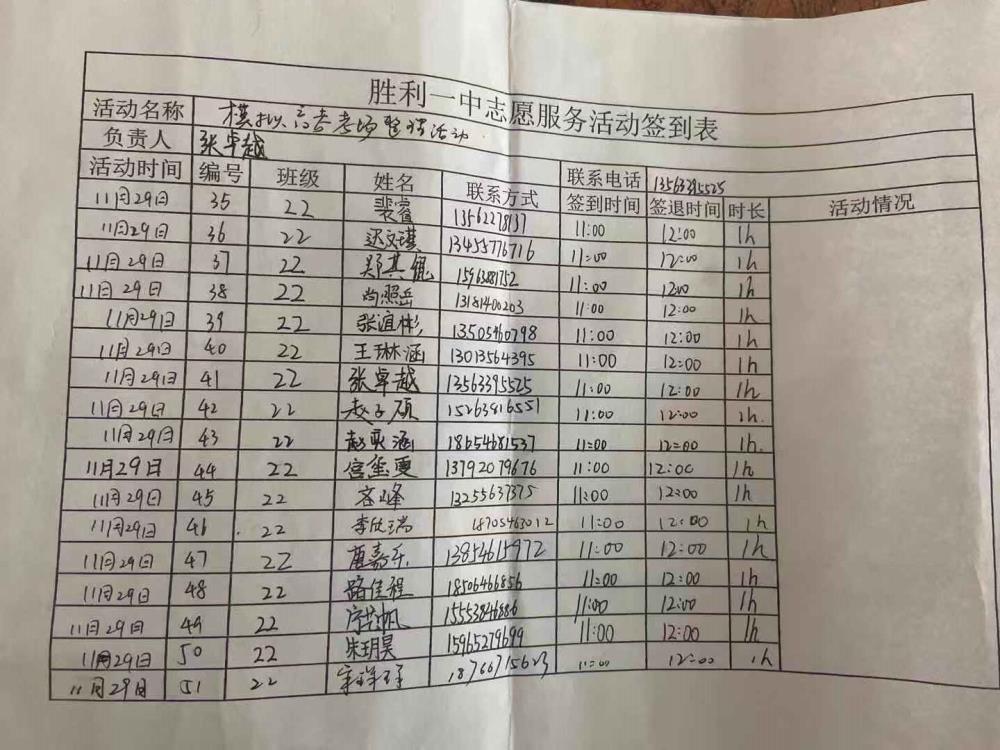 胜利一中志愿服务活动签到表
活动名称 模拟高考考场整理活动
负责人 张卓越 联系电话 13563395525
活动时间 编号 班级 姓名 联系方式 签到时间 签退时间 时长 活动情况
11月29日 35 22 裴睿 13562278137 11:00 12:00 1h
11月29日 36 22 迟文琪 13455776716 11:00 12:00 1h
11月29日 37 22 郑其锟 11:00 12:00 1h
11月29日 38 22 尚照岳 13181400203 11:00 12:00 1h
11月29日 39 22 张谊彬 13505460798 11:00 12:00 1h
11月29日 40 22 王琳涵 13013564395 11:00 12:00 1h
11月29日 41 22 张卓越 13563395525 11:00 12:00 1h
11月29日 42 22 赵子硕 15263816551 11:00 12:00 1h.
11月29日 43 22 赵奕涵 18654681537 11:00 12:00 1h.
11月29日 44 22 宫玺雯 13792079676 11:00 12:00 1h
11月29日 45 22 13255637375 11:00 12:00 1h
11月29日 46 22 李欣瑞 18705463012 11:00 12:00 1h
11月29日 47 22 13854615972 11:00 12:00 1h
11月29日 48 22 路佳程 18506466856 11:00 12:00 1h
11月29日 49 22 15553846886 11:00 12:00 1h
11月29日 50 22 朱玥昊 15965279699 11:00 12:00 1h
11月29日 51 22 18766715623 11:00 12:00 1h